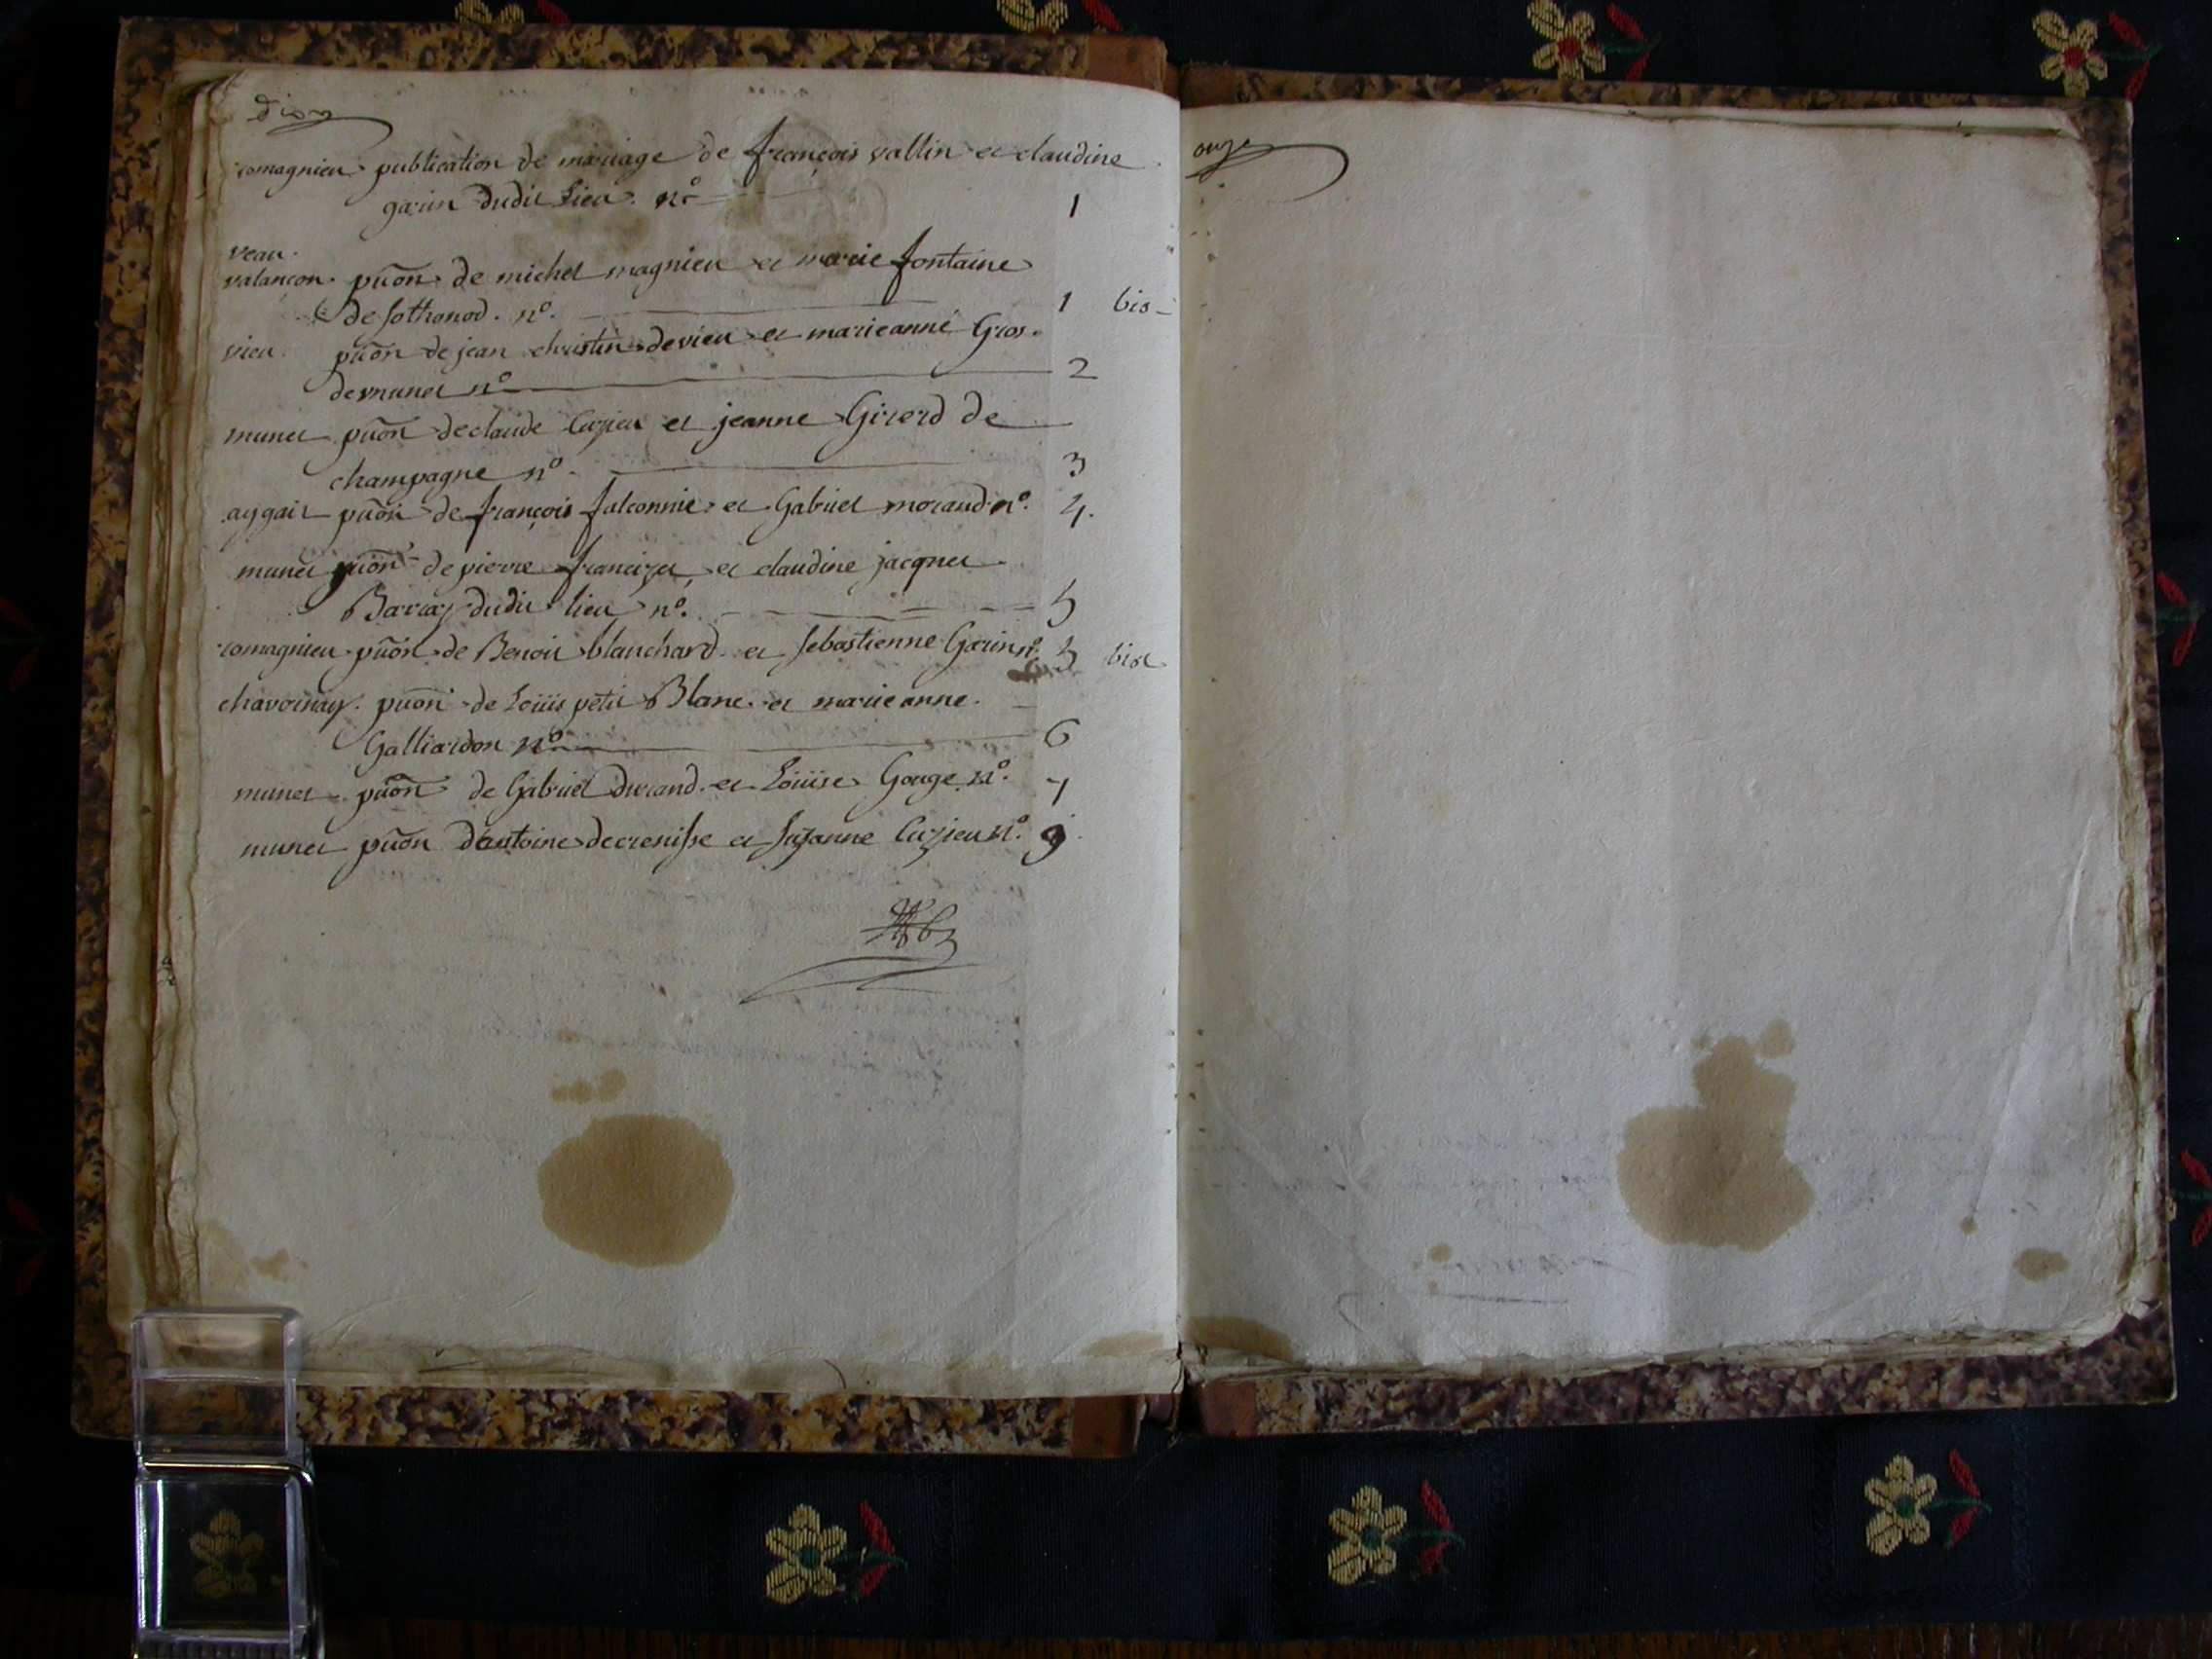 dix
romagnieu publication de mariage de françois vallin et claudine
garin dudit Lieu. n°
1
veau.
valançon. puōn de michel magnieu et marie fontaine
de sothonod. n°.
1 bis
vieu puōn de jean christin de vieu et marieanne Gros.
de munet n°
2
munet puōn de claude Cuzieu et jeanne Girerd de
champagne n°
3
puōn de françois falconnie et Gabriel morand n°. 4.
munet puōn de pierre et claudine jacquet
Barraz dudit lieu n°.
5
romagnieu puōn de Benoit blanchard et sebastienne Garin n°. 5 bis
puōn de Loüis petit Blanc et marieanne
Galliardon n°
6
munet puōn de Gabriel Durand et Loüise Gouge n°. 7
munet puōn d'antoine decrenisse et suzanne Cuzieu n°. 9
onze